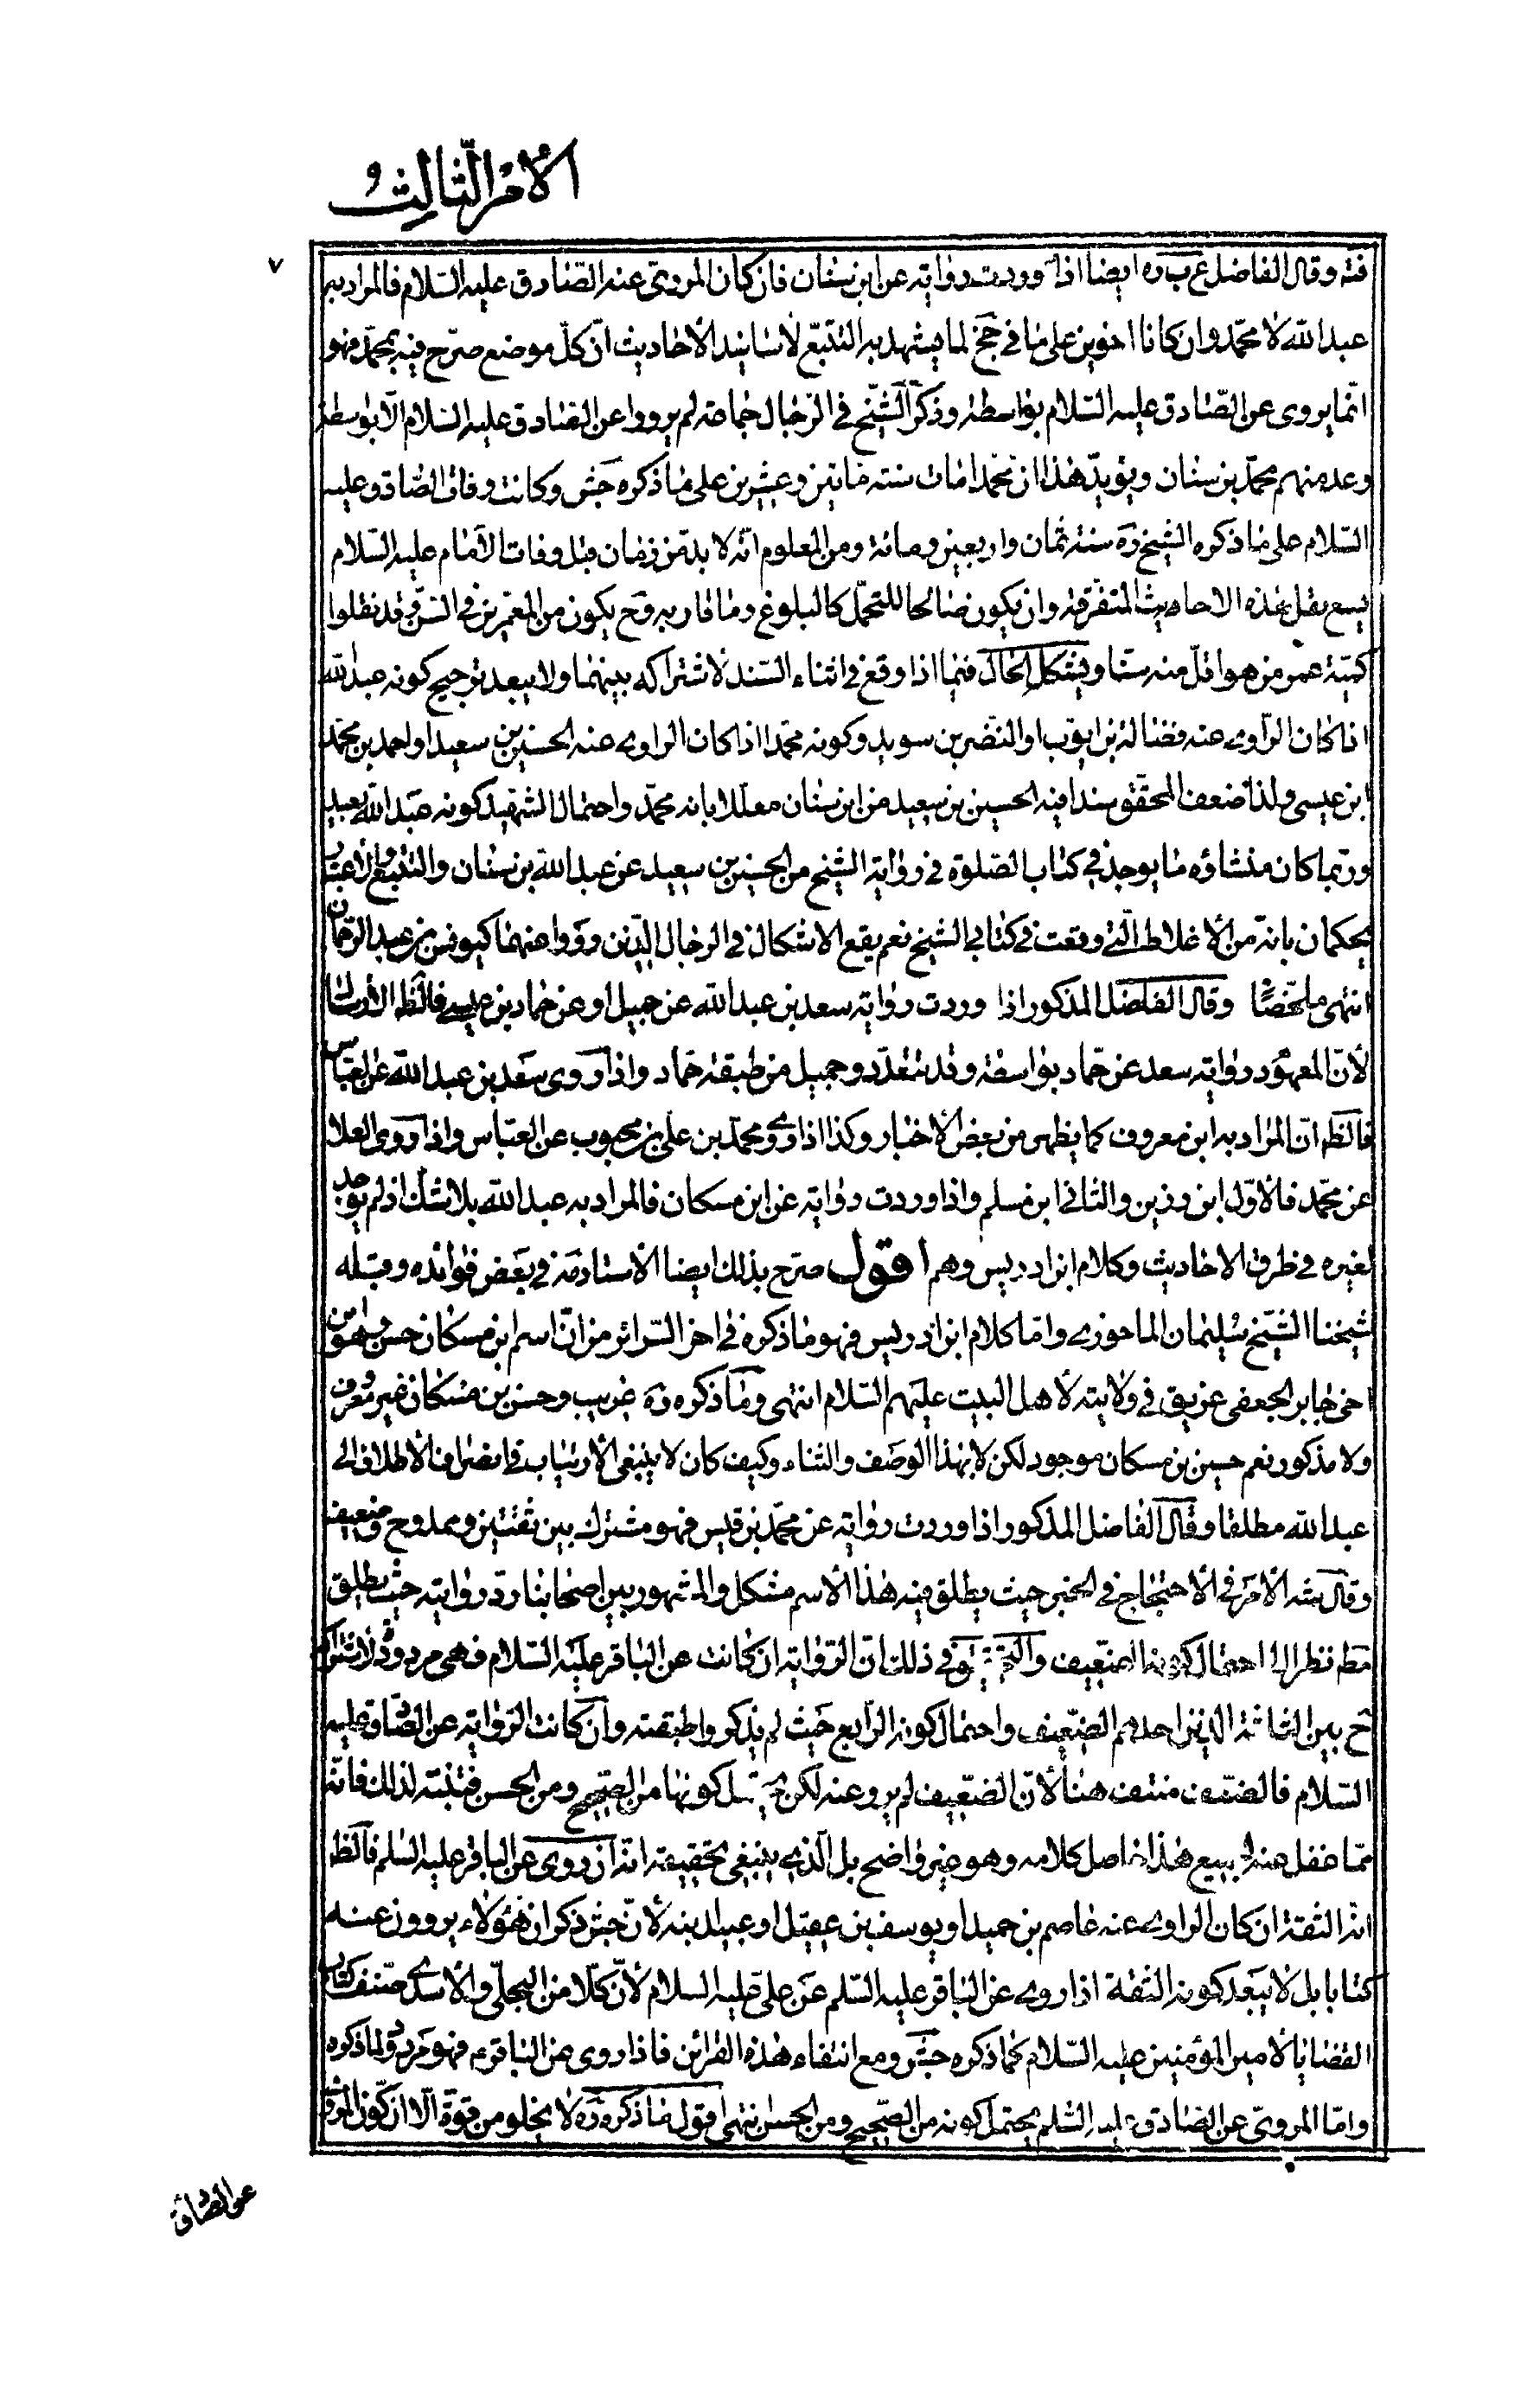 الأمر الثالث
٧
فته وقال الفاضل عرب ره ايضا اذا وردت رواية عن ابن سنان فان كان المروى عنه الصادق عليه السلام فالمراد به
عبد الله لا محمد وان كانا اخوين على ما في جخ لما يشهد به التتبع لأسانيد الأحاديث ان كل موضع صرح فيه بمحمد فهو
انما يروى عن الصادق عليه السلام بواسطة وذكر الشيخ في الرجال جماعة لم يرووا عن الصادق عليه السلام الا بواسطة
وعد منهم محمد بن سنان ويؤيد هذا ان محمدا مات سنة مأتين وعشرين على ما ذكره جش وكانت وفات الصادق عليه
السلام على ما ذكره الشيخ ره سنة ثمان واربعين ومائة ومن المعلوم انه لا بد من زمان قبل وفات الأمام عليه السلام
يسع نقل هذه الاحاديث المتفرقة وان يكون صالحا للتحمل كالبلوغ وما قاربه وح يكون من المعمرين في السن وقد نقلوا
كمية عمر من هو اقل منه سنا ويشكل الحال فيما اذا وقع في اثناء السند لاشتراكه بينهما ولا يبعد ترجيح كونه عبد الله
اذا كان الراوى عنه فضالة بن ايوب او النضر بن سويد وكونه محمدا اذا كان الراوى عنه الحسين بن سعيد او احمد بن محمد
ابن عيسى ولذا ضعف المحقق سندا فيه الحسين بن سعيد عن ابن سنان معللا بانه محمد واحتمال الشهيد كونه عبد الله بعيد
وربما كان منشاؤه ما يوجد في كتاب الصلوة في رواية الشيخ من الحسين بن سعيد عن عبد الله بن سنان والتتبع والأعتبار
يحكمان بانه من الأغلاط التى وقعت في كتابى الشيخ نعم يقع الاشكال في الرجال الذين رووا عنهما كيونس بن عبد الرحمان
انتهى ملخصا وقال الفاضل المذكور اذا وردت رواية سعد بن عبد الله عن جميل او عن حماد بن عيسى فالظ الأرسال
لأن المعهود رواية سعد عن حماد بواسطة وقد تتعدد وجميل من طبقة حماد واذا روى سعد بن عبد الله عن العباس
فالظ ان المراد به ابن معروف كما يظهر من بعض الأخبار وكذا اذا روى محمد بن على بن محبوب عن العباس واذا روى العلا
عن محمد فالأول ابن رزين والثانى ابن مسلم واذا وردت رواية عن ابن مسكان فالمراد به عبد الله بلا شك اذ لم يوجد
لغيره في طرق الاحاديث وكلام ابن ادريس وهم اقول صرح بذلك ايضا الأستاد مة في بعض فوائده وقبله
شيخنا الشيخ سليمان الماحوزى واما كلام ابن ادريس فهو ما ذكره في اخر السرائر من ان اسم ابن مسكان حسن وهو ابن
اخى جابر الجعفى عريق في ولايته لأهل البيت عليهم السلام انتهى وما ذكره ره غريب وحسن بن مسكان غير معروف
ولا مذكور نعم حسين بن مسكان موجود لكن لا بهذا الوصف والثناء وكيف كان لا ينبغى الأرتياب في انصراف الأطلاق الى
عبد الله مطلقا وقال الفاضل المذكور اذا وردت رواية عن محمد بن قيس فهو مشترك بين ثقتين وممدوح وضعيف
وقال شه الأمر في الأحتجاج في الخبر حيث يطلق فيه هذا الأسم مشكل والمشهور بين اصحابنا رد روايته حيث يطلق
مطم نظرا الى احتمال كونه الضعيف والتحقيق في ذلك ان الرواية ان كانت عن الباقر عليه السلام فهى مردودة لاشتراكه
ح بين الثلثة الذين احدهم الضعيف واحتمال كونه الرابع حيث لم يذكروا طبقته وان كانت الرواية عن الصادق عليه
السلام فالضعف منتف هنا لأن الضعيف لم يرو عنه لكن يحتمل كونها من الصحيح ومن الحسن فتنبه لذلك فانه
مما غفل عنه الجميع هذا اصل كلامه وهو غير واضح بل الذى ينبغى تحقيقه انه ان روى عن الباقر عليه السلم فالظ
انه الثقة ان كان الراوى عنه عاصم بن حميد او يوسف بن عقيل او عبيد ابنه لأن جش ذكر ان هؤلاء يروون عنه
كتابا بل لا يبعد كونه الثقة اذا روى عن الباقر عليه السلم عن على عليه السلام لأن كلا من البجلى والأسدى صنف كتاب
القضايا لأمير المؤمنين عليه السلام كما ذكره جش ومع انتفاء هذه القرائن فاذا روى عن الباقر ع فهو مردود لما ذكره
واما المروى عن الصادق عليه السلم يحتمل كونه من الصحيح ومن الحسن انتهى اقول ما ذكره ره لا يخلو من قوة الا ان كون المروى
عن الصادق